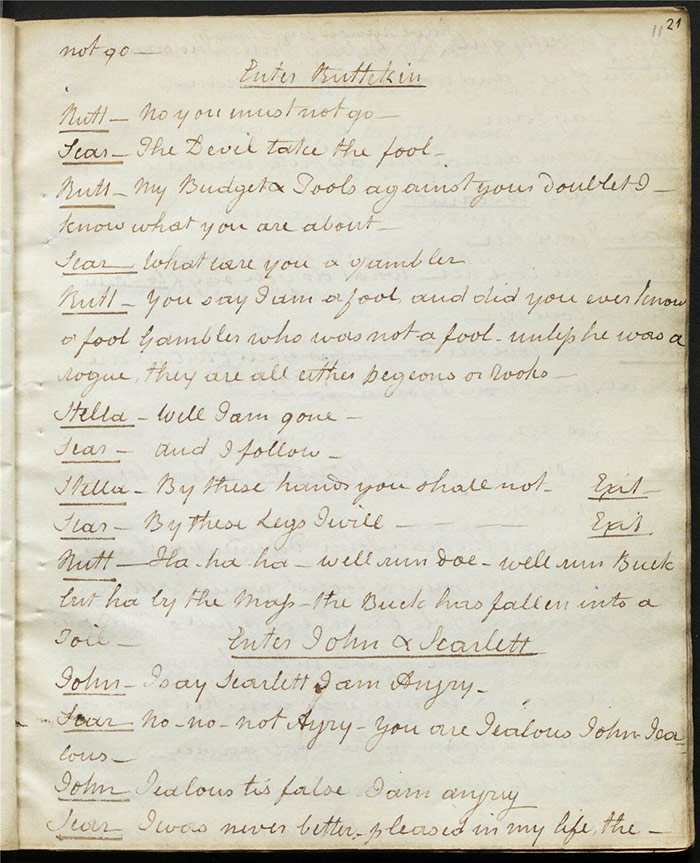 11 21
not go —
Enter Ruttekin
Rutt — No you must not go —
Scar — The Devil take the fool —
Rutt — My Budget & Tools against your doublet I —
know what you are about —
Scar What are you a gambler
Rutt — you say I am a fool and did you ever know
a fool Gambler who was not a fool - unless he was a
rogue, they are all either pegeons or rooks —
Stella — Well I am gone —
Scar — and I follow —
Stella — By these hands you shall not — Exit —
Scar — By these Legs I will — — — Exit
Rutt — Ha - ha ha — well run doe — well run Buck
but ha by the Mass — the Buck has fallen into a
Toil — Enter John & Scarlett
John — I say Scarlett I am Angry —
Scar No — no — not Agry — you are Jealous John Jea
lous —
John Jealous tis false I am angry
Scar I was never better pleased in my life, the —